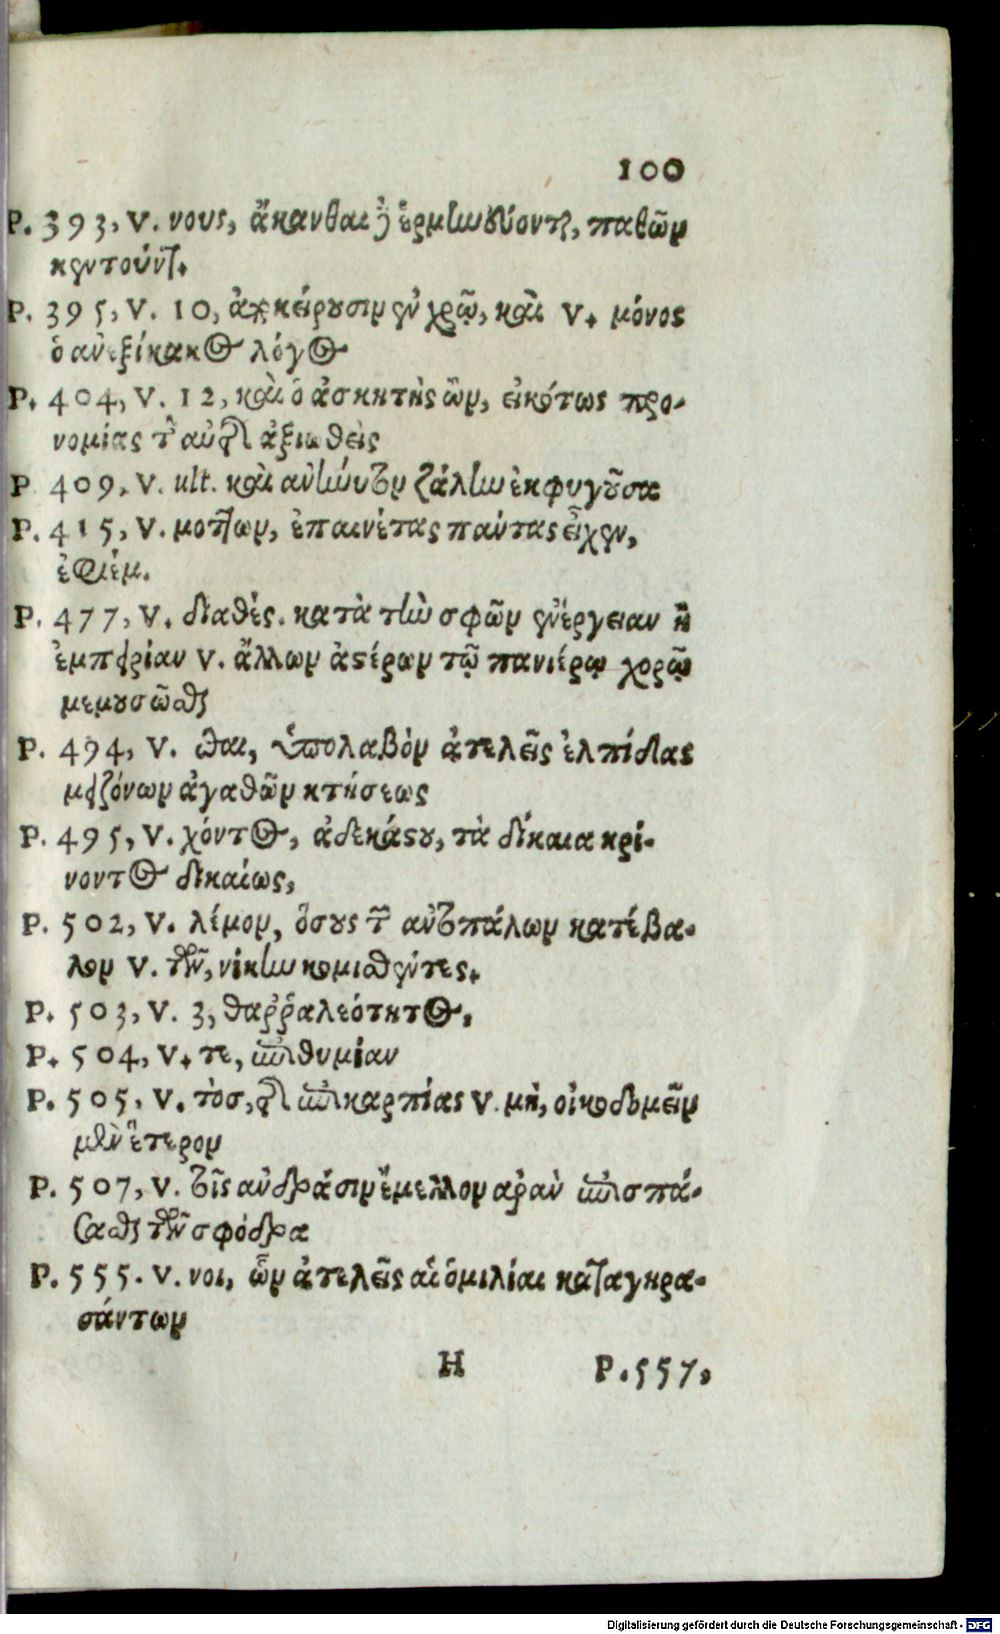 100
P. 393, V. νους, ἄκανθαι ἑρμηνεύονται, παθῶν
κεντούντων.
P. 395, V. 10, ἀποκείρουσιν ἐν χρῷ, καὶ V. μόνος
ὁ ἀνεξίκακος λόγος
P. 404, V. 12, καὶ ὁ ἀσκητὴς ὢν, εἰκότως προ-
νομίας τῆς αὐτῆς ἀξιωθεὶς
P 409, V. ult. καὶ ἀνήνυτον ζάλην ἐκφυγοῦσα
P. 415, V. μοτων, ἐπαινέτας πάντας εἶχεν,
P. 477, V. διαθές. κατὰ τὴν σφῶν ἐνέργειαν ἢ
ἐμπειρίαν V. ἄλλων ἀστέρων τῷ πανιέρῳ χορῷ
μεμουσῶσθαι
P. 494, V. σθαι, ὑπολαβὸν ἀτελεῖς ἐλπίδας
μειζόνων ἀγαθῶν κτήσεως
P. 495, V. χόντος, ἀδεκάστου, τὰ δίκαια κρί-
νοντος δικαίως,
P. 502, V. λέμον, ὅσους τῶν ἀντιπάλων κατέβα-
λον V. τῶν, νίκην κομισθέντες.
P. 503, V. 3, θαῤῥαλεότητος,
P. 504, V. τε, ἐπιθυμίαν
P. 505, V. τὸσ, τῆς ἐπικαρπίας V. μὴ, οἰκοδομεῖν
μὲν ἕτερον
P. 507, V. τοῖς ἀνδράσιν ἔμελλον ἀρὰν ἐπισπά-
σασθαι τῶν σφόδρα
P. 555. V. νοι, ὧν ἀτελεῖς αἱ ὁμιλίαι καταγηρα-
σάντων
H P. 557,
Digitalisierung gefördert durch die Deutsche Forschungsgemeinschaft - DFG